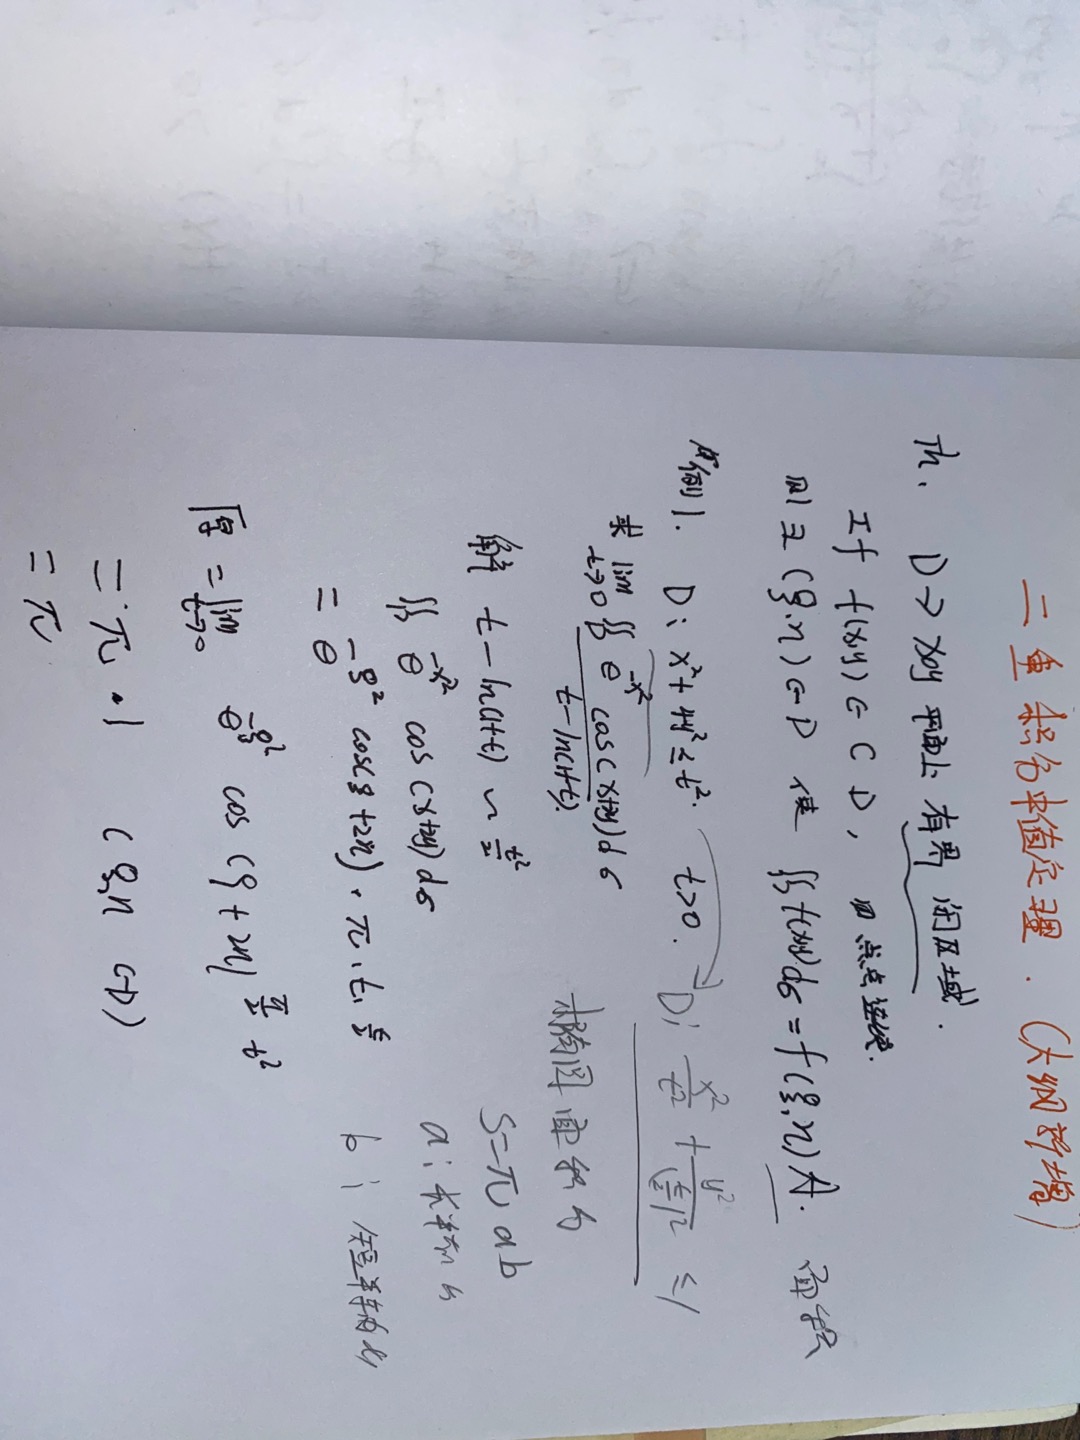 二重积分中值定理.（大纲新增）
Th. D→xoy 平面上 有界 闭区域.
If f(x,y)∈C D, 即点点连续.
则 ∃(ξ,η)∈D 使 ∬f(x,y)dσ=f(ξ,η)A. 面积
例1. D: x²+4y²≤t². t>0. → D: x²/t² + y²/(t/2)² ≤1
求 lim t→0 ∬e^{-x²}cos(x+2y)dσ / t-ln(1+t).
椭圆面积
解 t-ln(1+t) ~ t²/2
S=πab
∬ e^{-x²} cos(x+2y)dσ
a: 长半轴
= e^{-ξ²} cos(ξ+2η)·π·t·t/2
b: 短半轴
原=lim t→0 e^{-ξ²} cos(ξ+2η) π/2 t²
=π·1 (ξ,η ∈D)
=π